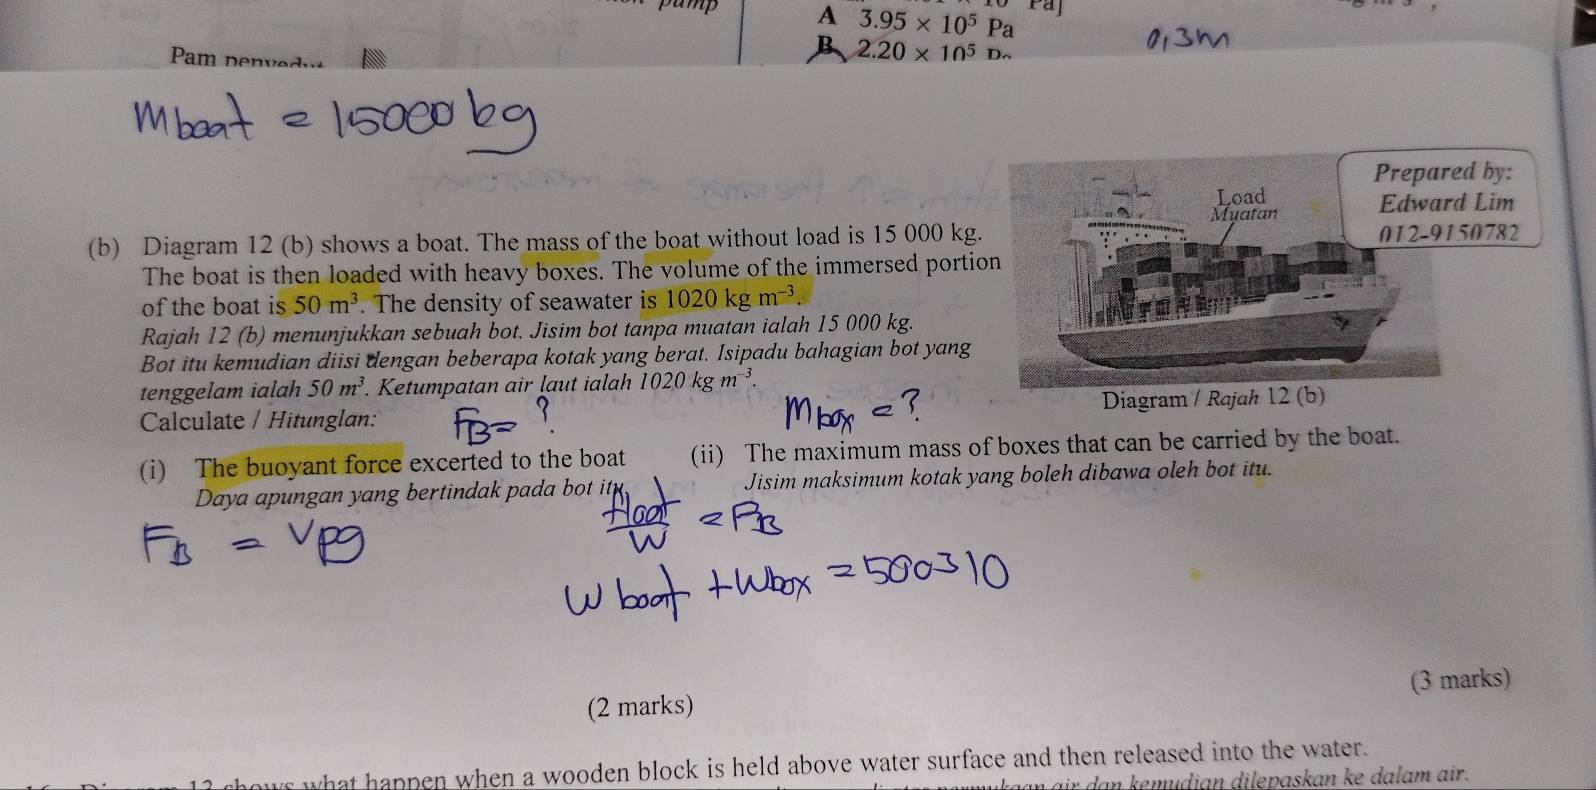 pump
A 3.95 × 10⁵ Pa
B 2.20 × 10⁵
0,3m
Pam
Mboat = 15000 kg
Prepared by:
Edward Lim
012-9150782
Load
Muatan
(b) Diagram 12 (b) shows a boat. The mass of the boat without load is 15 000 kg.
The boat is then loaded with heavy boxes. The volume of the immersed portion
of the boat is 50 m³. The density of seawater is 1020 kg m⁻³.
Rajah 12 (b) menunjukkan sebuah bot. Jisim bot tanpa muatan ialah 15 000 kg.
Bot itu kemudian diisi dengan beberapa kotak yang berat. Isipadu bahagian bot yang
tenggelam ialah 50 m³. Ketumpatan air laut ialah 1020 kg m⁻³.
Diagram / Rajah 12 (b)
Calculate / Hitunglan:
FB = ?
Mbox = ?
(i) The buoyant force excerted to the boat
Daya apungan yang bertindak pada bot itu
(ii) The maximum mass of boxes that can be carried by the boat.
Jisim maksimum kotak yang boleh dibawa oleh bot itu.
FB = Vρg
float
W = FB
W boat + Wbox = 500310
(2 marks)
(3 marks)
shows what happen when a wooden block is held above water surface and then released into the water.
air dan kemudian dilepaskan ke dalam air.